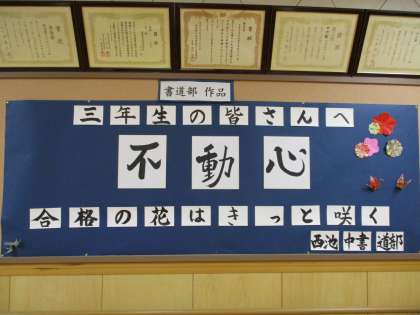 書道部 作品
三年生の皆さんへ
不動心
合格の花はきっと咲く
西池中書道部